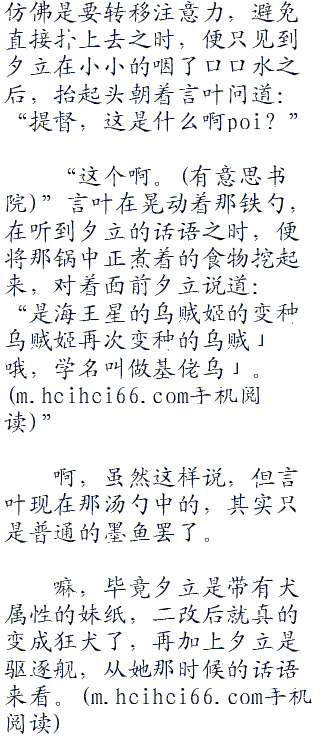 仿佛是要转移注意力，避免
直接扑上去之时，便只见到
夕立在小小的咽了口口水之
后，抬起头朝着言叶问道：
“提督，这是什么啊poi？”
“这个啊。(有意思书
院)”言叶在晃动着那铁勺，
在听到夕立的话语之时，便
将那锅中正煮着的食物挖起
来，对着面前夕立说道：
“是海王星的乌贼姬的变种
乌贼姬再次变种的乌贼」
哦，学名叫做基佬乌」。
(m.hcihci66.com手机阅
读)”
啊，虽然这样说，但言
叶现在那汤勺中的，其实只
是普通的墨鱼罢了。
嘛，毕竟夕立是带有犬
属性的妹纸，二改后就真的
变成狂犬了，再加上夕立是
驱逐舰，从她那时候的话语
来看。(m.hcihci66.com手机
阅读)